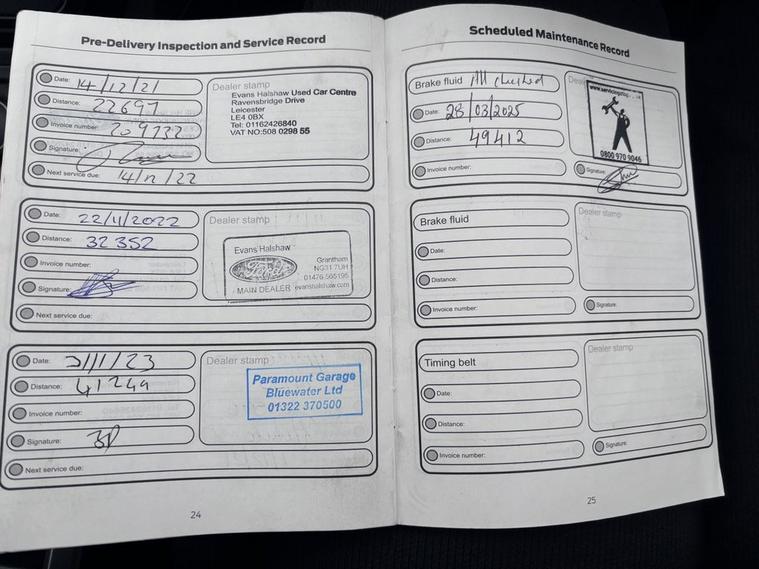 Pre-Delivery Inspection and Service Record
Date: 14/12/21
Distance: 22697
Invoice number: 209732
Signature:
Next service due: 14/12/22
Dealer stamp
Evans Halshaw Used Car Centre
Ravensbridge Drive
Leicester
LE4 0BX
Tel: 01162426840
VAT NO:508 0298 55
Date: 22/11/2022
Distance: 32352
Invoice number:
Signature:
Next service due:
Dealer stamp
Evans Halshaw
Ford
Grantham
NG31 7UH
01476 565195
MAIN DEALER evanshalshaw.com
Date: 31/1/23
Distance: 41249
Invoice number:
Signature:
Next service due:
Dealer stamp
Paramount Garage
Bluewater Ltd
01322 370500
24
Scheduled Maintenance Record
Brake fluid checked
Date: 28/03/2025
Distance: 49412
Invoice number:
0800 970 9046
Signature:
Brake fluid
Date:
Distance:
Invoice number:
Dealer stamp
Signature:
Timing belt
Date:
Distance:
Invoice number:
Dealer stamp
Signature:
25